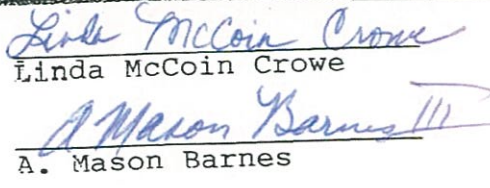 Linda McCoin Crowe
Linda McCoin Crowe
A Mason Barnes III
A. Mason Barnes